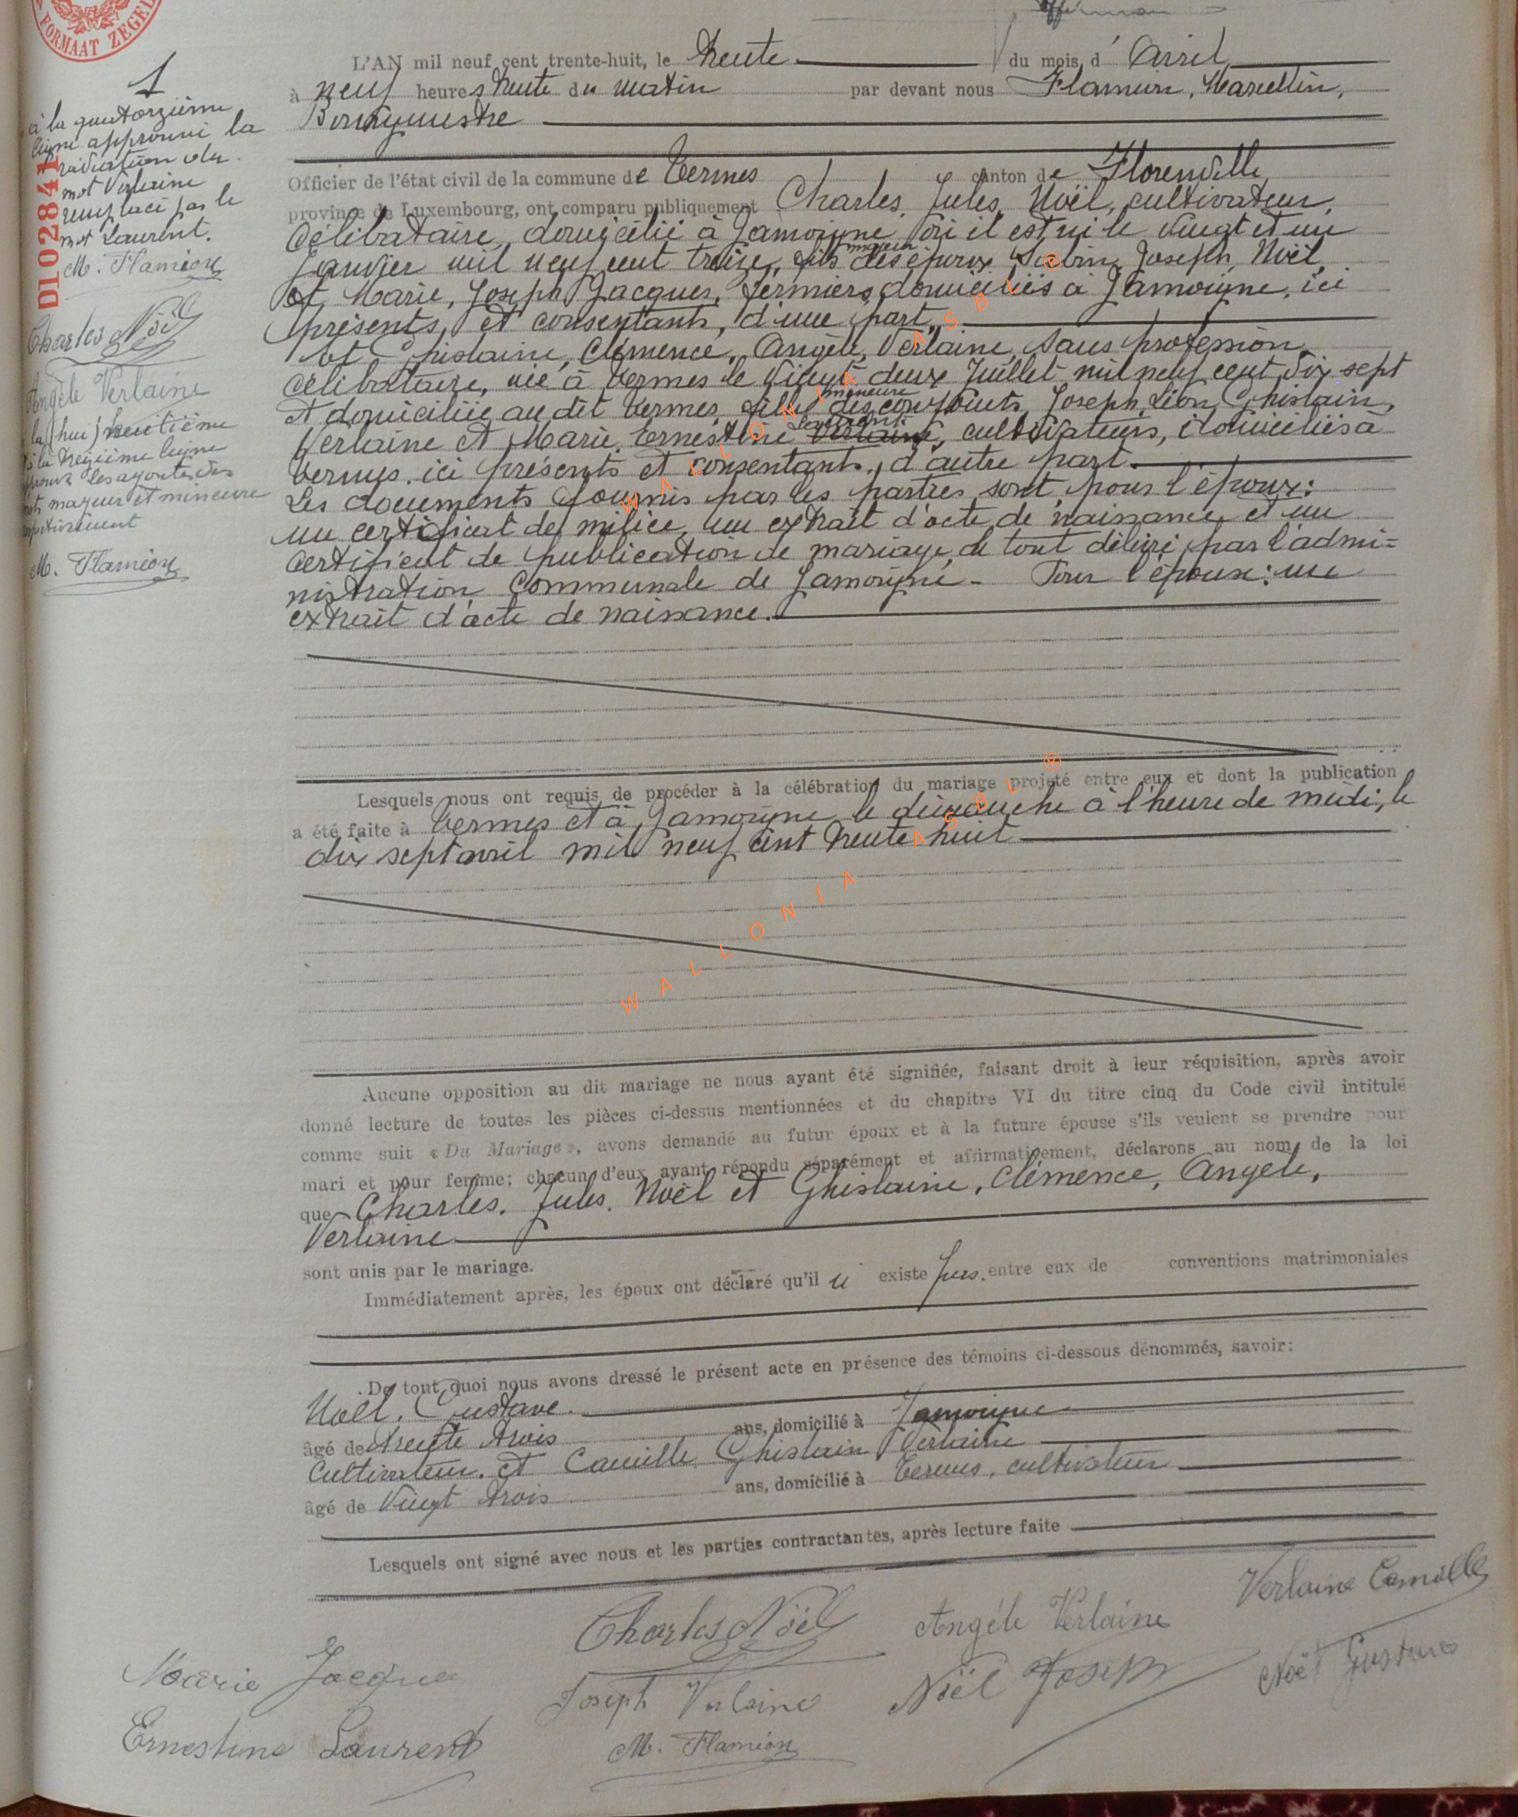 FORMAAT ZEGEL
L'AN mil neuf cent trente-huit, le trente du mois d'Avril
à neuf heures trente du matin par devant nous Flamion, Marcellin,
Bourgmestre
Officier de l'état civil de la commune de Termes canton de Florenville
province de Luxembourg, ont comparu publiquement Charles, Jules, Noël, cultivateur,
célibataire, domicilié à Jamoigne où il est né le vingt et un
majeur
janvier mil neuf cent treize, fils des époux Joseph, Noël,
et Marie, Joseph Jacques, fermiers domiciliés à Jamoigne, ici
présents, et consentants, d'une part,
et Ghislaine, Clémence, Angèle, Verlaine, sans profession,
célibataire, née à Termes le vingt deux Juillet mil neuf cent dix sept
mineure
et domiciliée au dit Termes, fille des conjoints Joseph, Léon, Ghislain,
Laurent
Verlaine et Marie, Ernestine Verlaine, cultivateurs, domiciliés à
Termes, ici présents et consentants, d'autre part.
Les documents fournis par les parties sont pour l'époux:
un certificat de milice, un extrait d'acte de naissance et un
certificat de publication de mariage, le tout délivré par l'admi=
nistration Communale de Jamoigne. Pour l'épouse: un
extrait d'acte de naissance.
Lesquels nous ont requis de procéder à la célébration du mariage projeté entre eux et dont la publication
a été faite à Termes et à Jamoigne le dimanche à l'heure de midi, le
dix sept avril mil neuf cent trente huit
Aucune opposition au dit mariage ne nous ayant été signifiée, faisant droit à leur réquisition, après avoir
donné lecture de toutes les pièces ci-dessus mentionnées et du chapitre VI du titre cinq du Code civil intitulé
comme suit « Du Mariage », avons demandé au futur époux et à la future épouse s'ils veulent se prendre pour
mari et pour femme; chacun d'eux ayant répondu séparément et affirmativement, déclarons au nom de la loi
que Charles, Jules, Noël et Ghislaine, Clémence, Angèle,
Verlaine
sont unis par le mariage.
Immédiatement après, les époux ont déclaré qu'il n' existe pas entre eux de conventions matrimoniales
De tout quoi nous avons dressé le présent acte en présence des témoins ci-dessous dénommés, savoir:
Noël, Gustave
âgé de trente trois ans, domicilié à Jamoigne
Cultivateur, et Camille Ghislain Verlaine
âgé de vingt trois ans, domicilié à Termes, cultivateur
Lesquels ont signé avec nous et les parties contractantes, après lecture faite
Charles Noël Angèle Verlaine Verlaine Camille
Marie Jacques Joseph Verlaine Noël Joseph Noël Gustave
Ernestine Laurent M. Flamion
1
à la quatorzième
ligne approuvé la
radiation du
mot Verlaine
remplacé par le
mot Laurent.
M. Flamion
DL028411
Charles Noël
Angèle Verlaine
à la (hui) huitième
à la treizième ligne
approuvé les ajoutes des
mots majeur et mineure
respectivement
M. Flamion
WALLONIA ASBL ©
WALLONIA ASBL ©